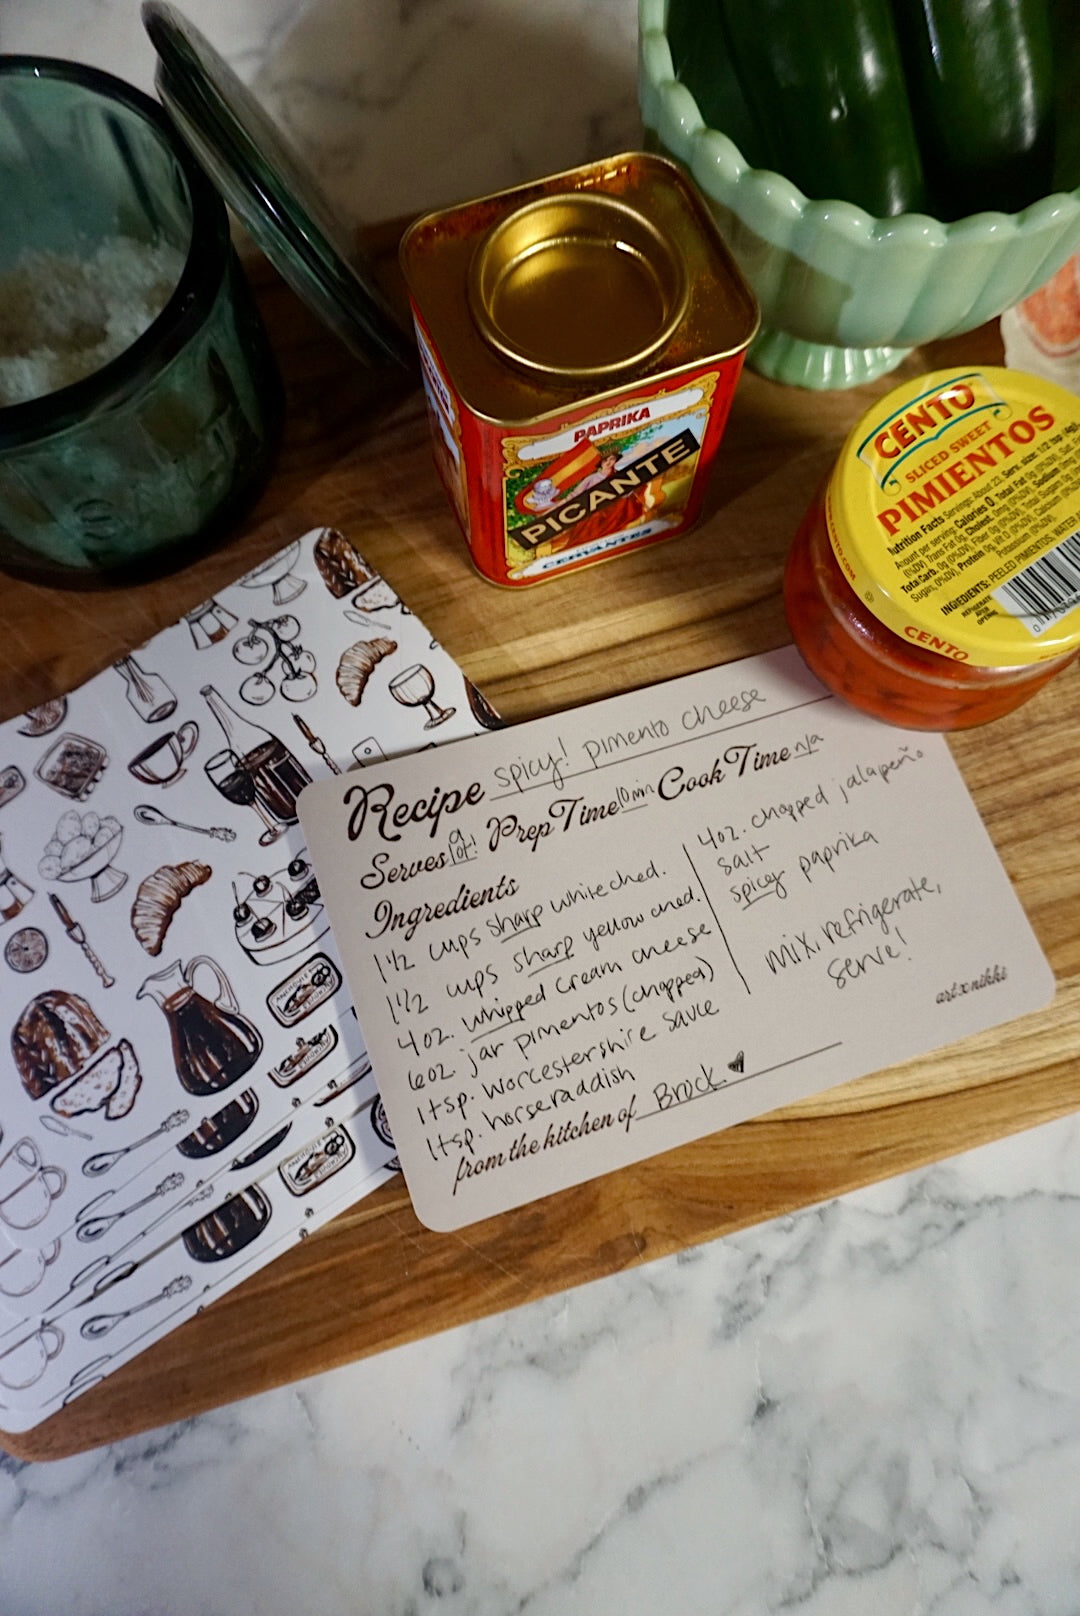 PAPRIKA
PICANTE
CERVANTES
CENTO
SLICED SWEET
PIMIENTOS
Nutrition Facts
Calories 0
CENTO
Recipe spicy! pimento cheese
Serves a lot! Prep Time 10 min Cook Time n/a
Ingredients
1 1/2 cups sharp white ched.
1 1/2 cups sharp yellow ched.
4oz. whipped cream cheese
6oz. jar pimentos (chopped)
1 tsp. worcestershire sauce
1 tsp. horseraddish
4oz. chopped jalapeño
salt
spicy paprika
mix, refrigerate,
serve!
from the kitchen of Brock.
art x nikki